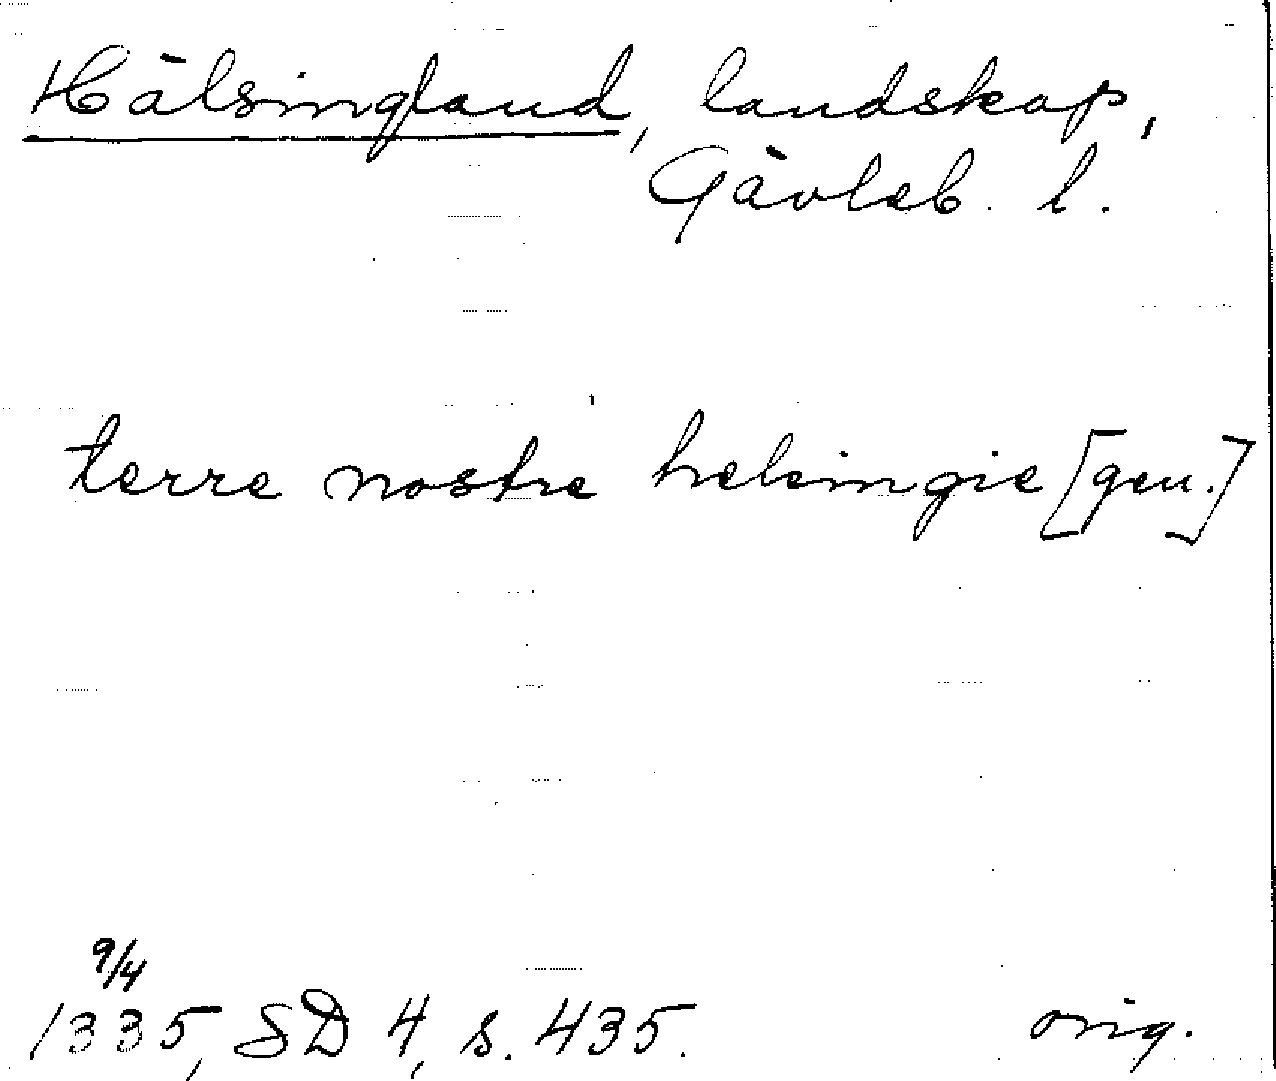 Hälsingland, landskap,
Gävleb. l.
terre nostre helsingie [gen.]
9/4
1335, SD 4, s. 435. orig.